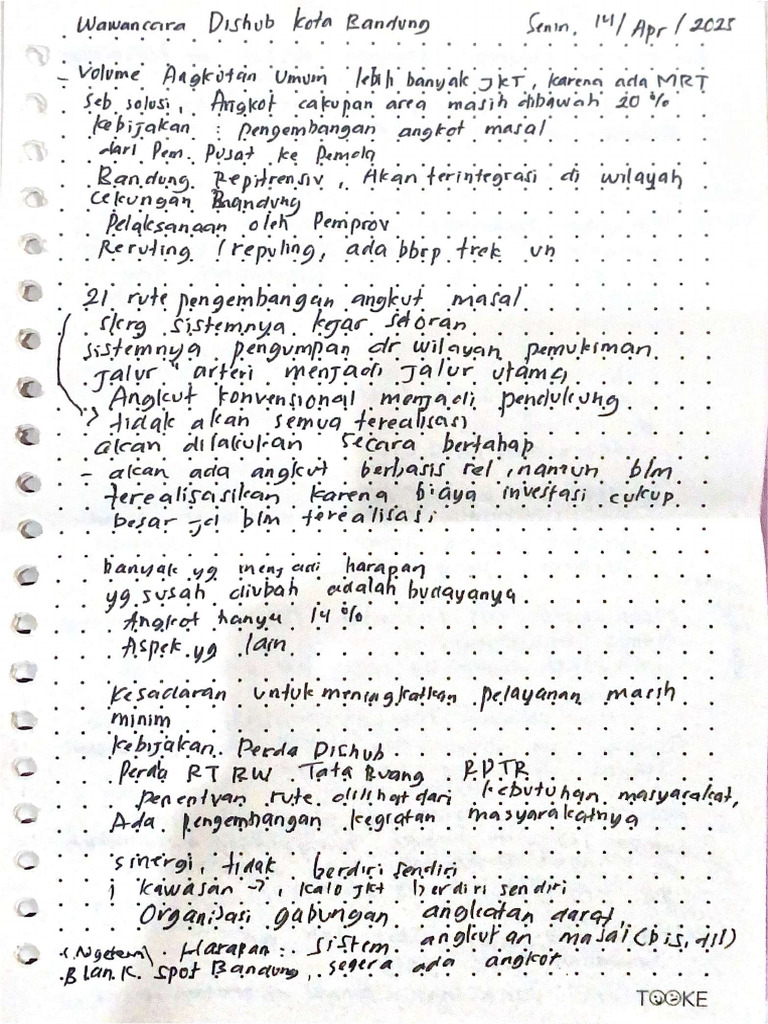 Wawancara Dishub Kota Bandung Senin, 14/Apr/2025
- Volume Angkutan Umum lebih banyak JKT, karena ada MRT
seb solusi, Angkot cakupan area masih dibawah 20%
Kebijakan : pengembangan angkot masal
dari Pem. Pusat ke Pemda
Bandung Repitrensiv, Akan terintegrasi di wilayah
Cekungan Bandung
Pelaksanaan oleh Pemprov
Reruting / repuling, ada bbrp trek
21 rute pengembangan angkut masal
skrg sistemnya kejar setoran
sistemnya pengumpan dr wilayah pemukiman
Jalur" arteri menjadi jalur utama
Angkut konvensional menjadi pendukung
> tidak akan semua terealisasi
akan dilakukan secara bertahap
- akan ada angkut berbasis rel, namun blm
terealisasikan karena biaya investasi cukup
besar jd blm terealisasi
banyak yg menjadi harapan
yg susah diubah adalah budayanya
Angkot hanya 14%
Aspek yg lain
Kesadaran untuk meningkatkan pelayanan masih
minim
Kebijakan Perda Dishub
Perda RT RW Tata Ruang RDTR
penentuan rute dilihat dari kebutuhan masyarakat,
Ada pengembangan kegiatan masyarakatnya
sinergi, tidak berdiri sendiri
kawasan →, kalo jkt berdiri sendiri
Organisasi gabungan angkatan darat,
(Ngetem) Harapan: sistem angkutan masal (bis, dll)
Blank spot Bandung, segera ada angkot
TOOKE